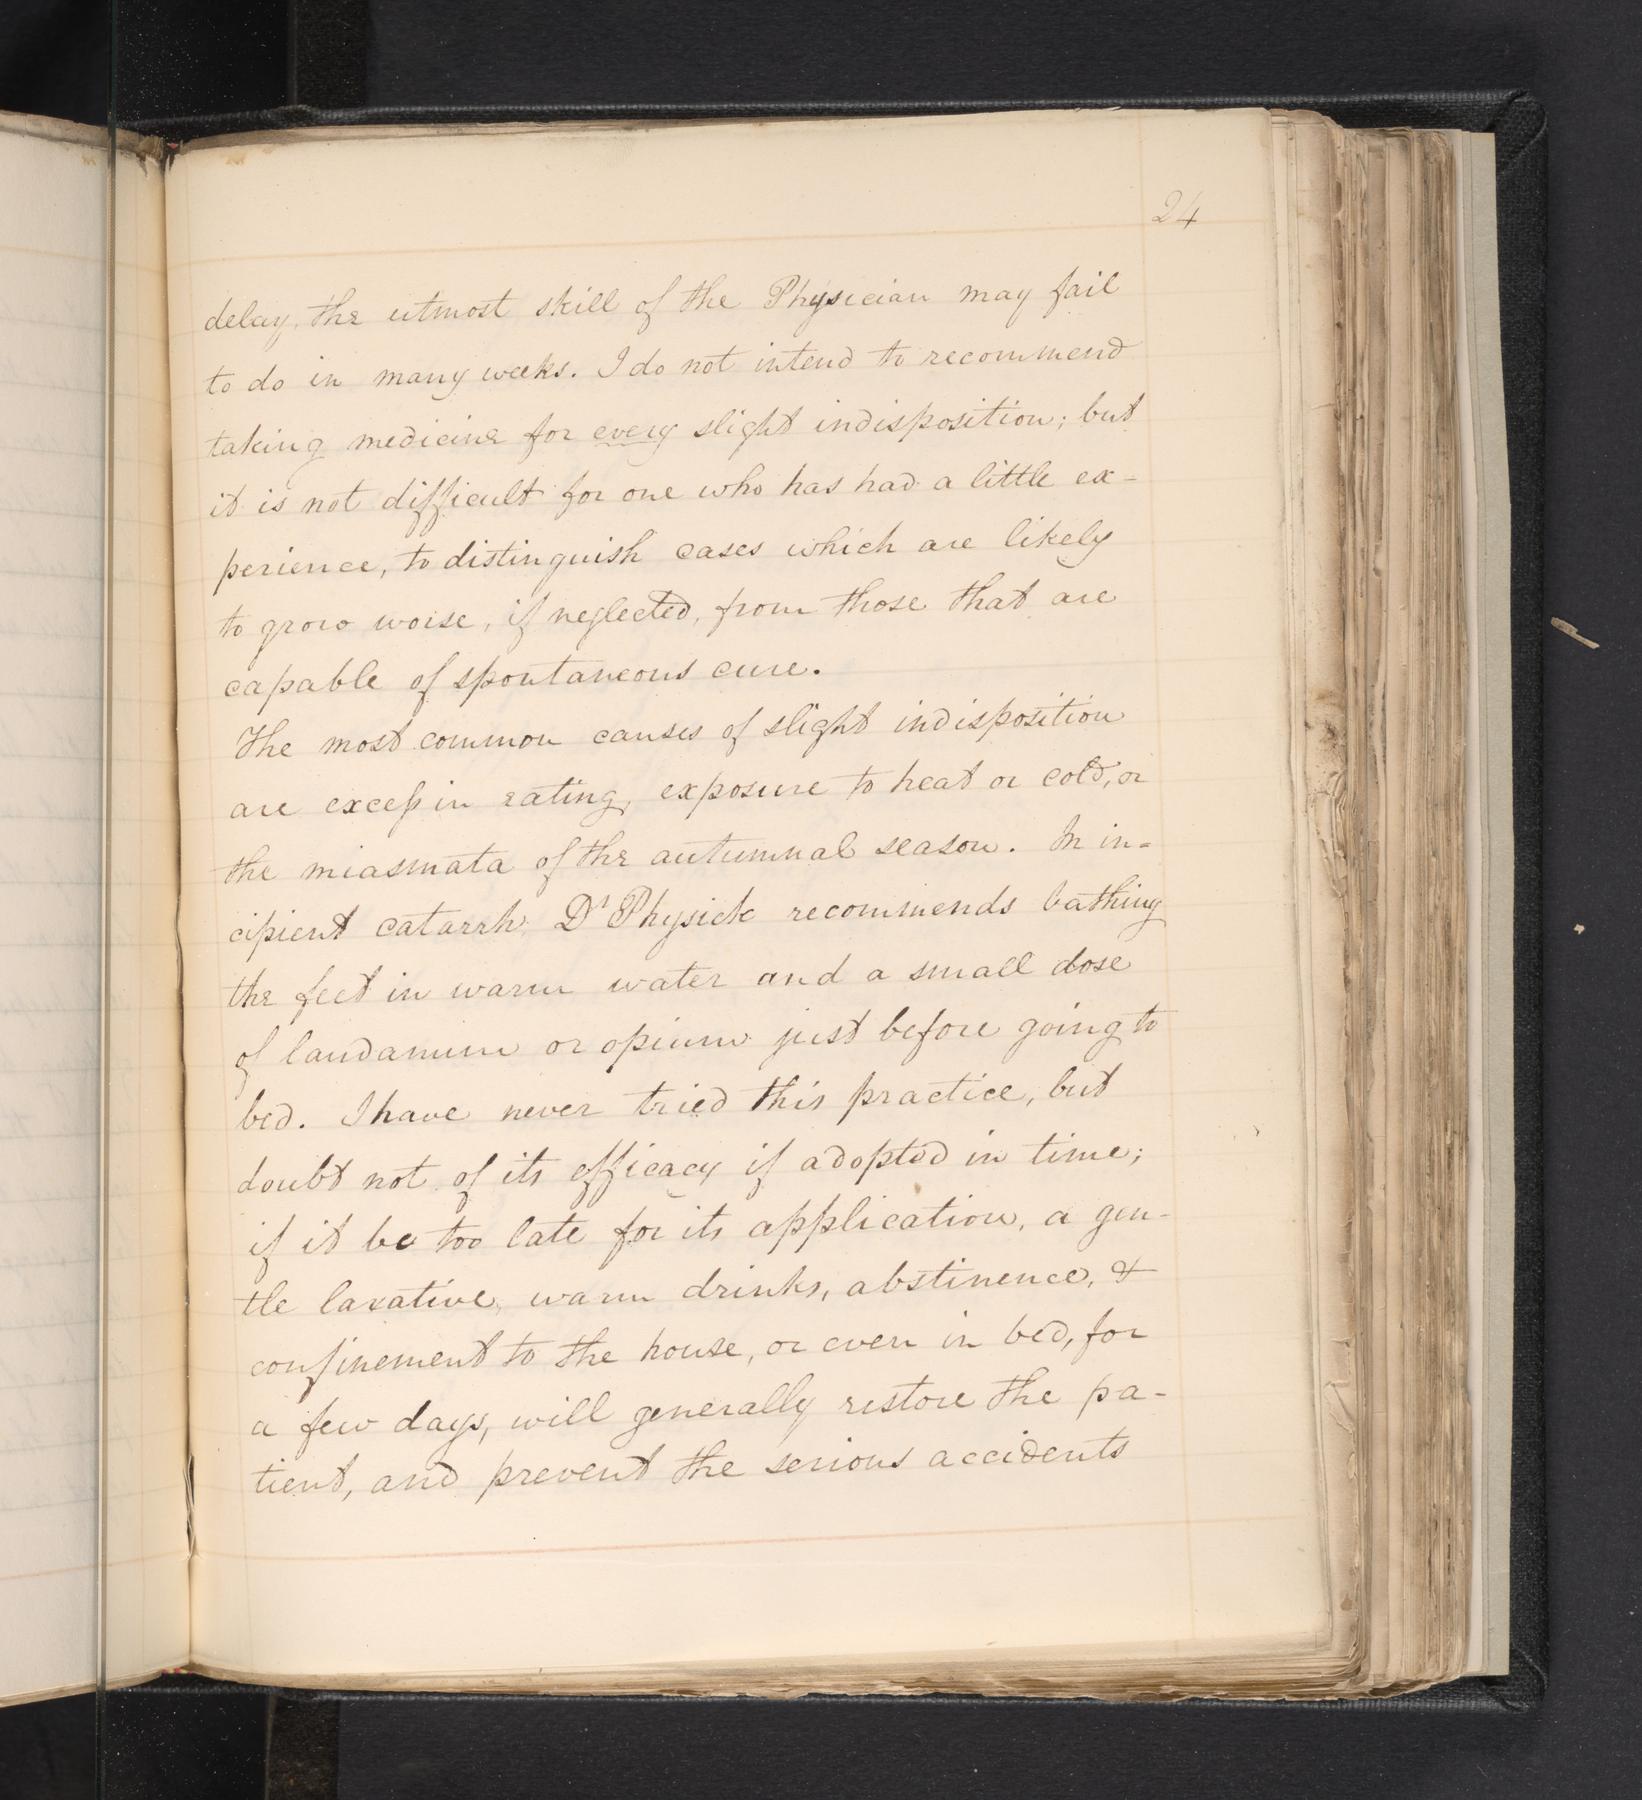 24
delay, the utmost skill of the Physician may fail
to do in many weeks. I do not intend to recommend
taking medicine for every slight indisposition; but
it is not difficult for one who has had a little ex-
perience, to distinguish cases which are likely
to grow worse, if neglected, from those that are
capable of spontaneous cure.
The most common causes of slight indisposition
are excess in eating, exposure to heat or cold, or
the miasmata of the autumnal season. In in-
cipient catarrh, Dr Physick recommends bathing
the feet in warm water and a small dose
of laudanum or opium just before going to
bed. I have never tried this practice, but
doubt not of its efficacy if adopted in time;
if it be too late for its application, a gen-
tle laxative, warm drinks, abstinence, &
confinement to the house, or even in bed, for
a few days, will generally restore the pa-
tient, and prevent the serious accidents